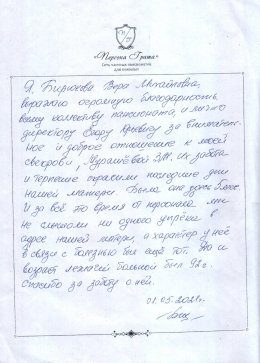 «Персона Грата»
Сеть частных пансионатов
для пожилых
Я, Бирюсева Вера Михайловна,
выражаю огромную благодарность
всему коллективу пансионата, и лично
директору за внимательное
и доброе отношение к моей
свекрови, З.М. Их забота
и терпение скрасили последние дни
нашей матери. Была она здесь
И за всё это время от персонала мы
не слышали ни одного упрёка в
адрес нашей матери, а характер у неё
в связи с болезнью был ещё тот. Да и
возраст лежачей больной был 92г.
Спасибо за заботу о ней.
01.05.2021г.